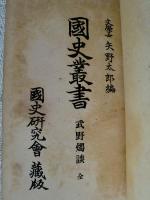 文學士 矢野太郎編
國史叢書
武野燭談 全
國史研究會藏版